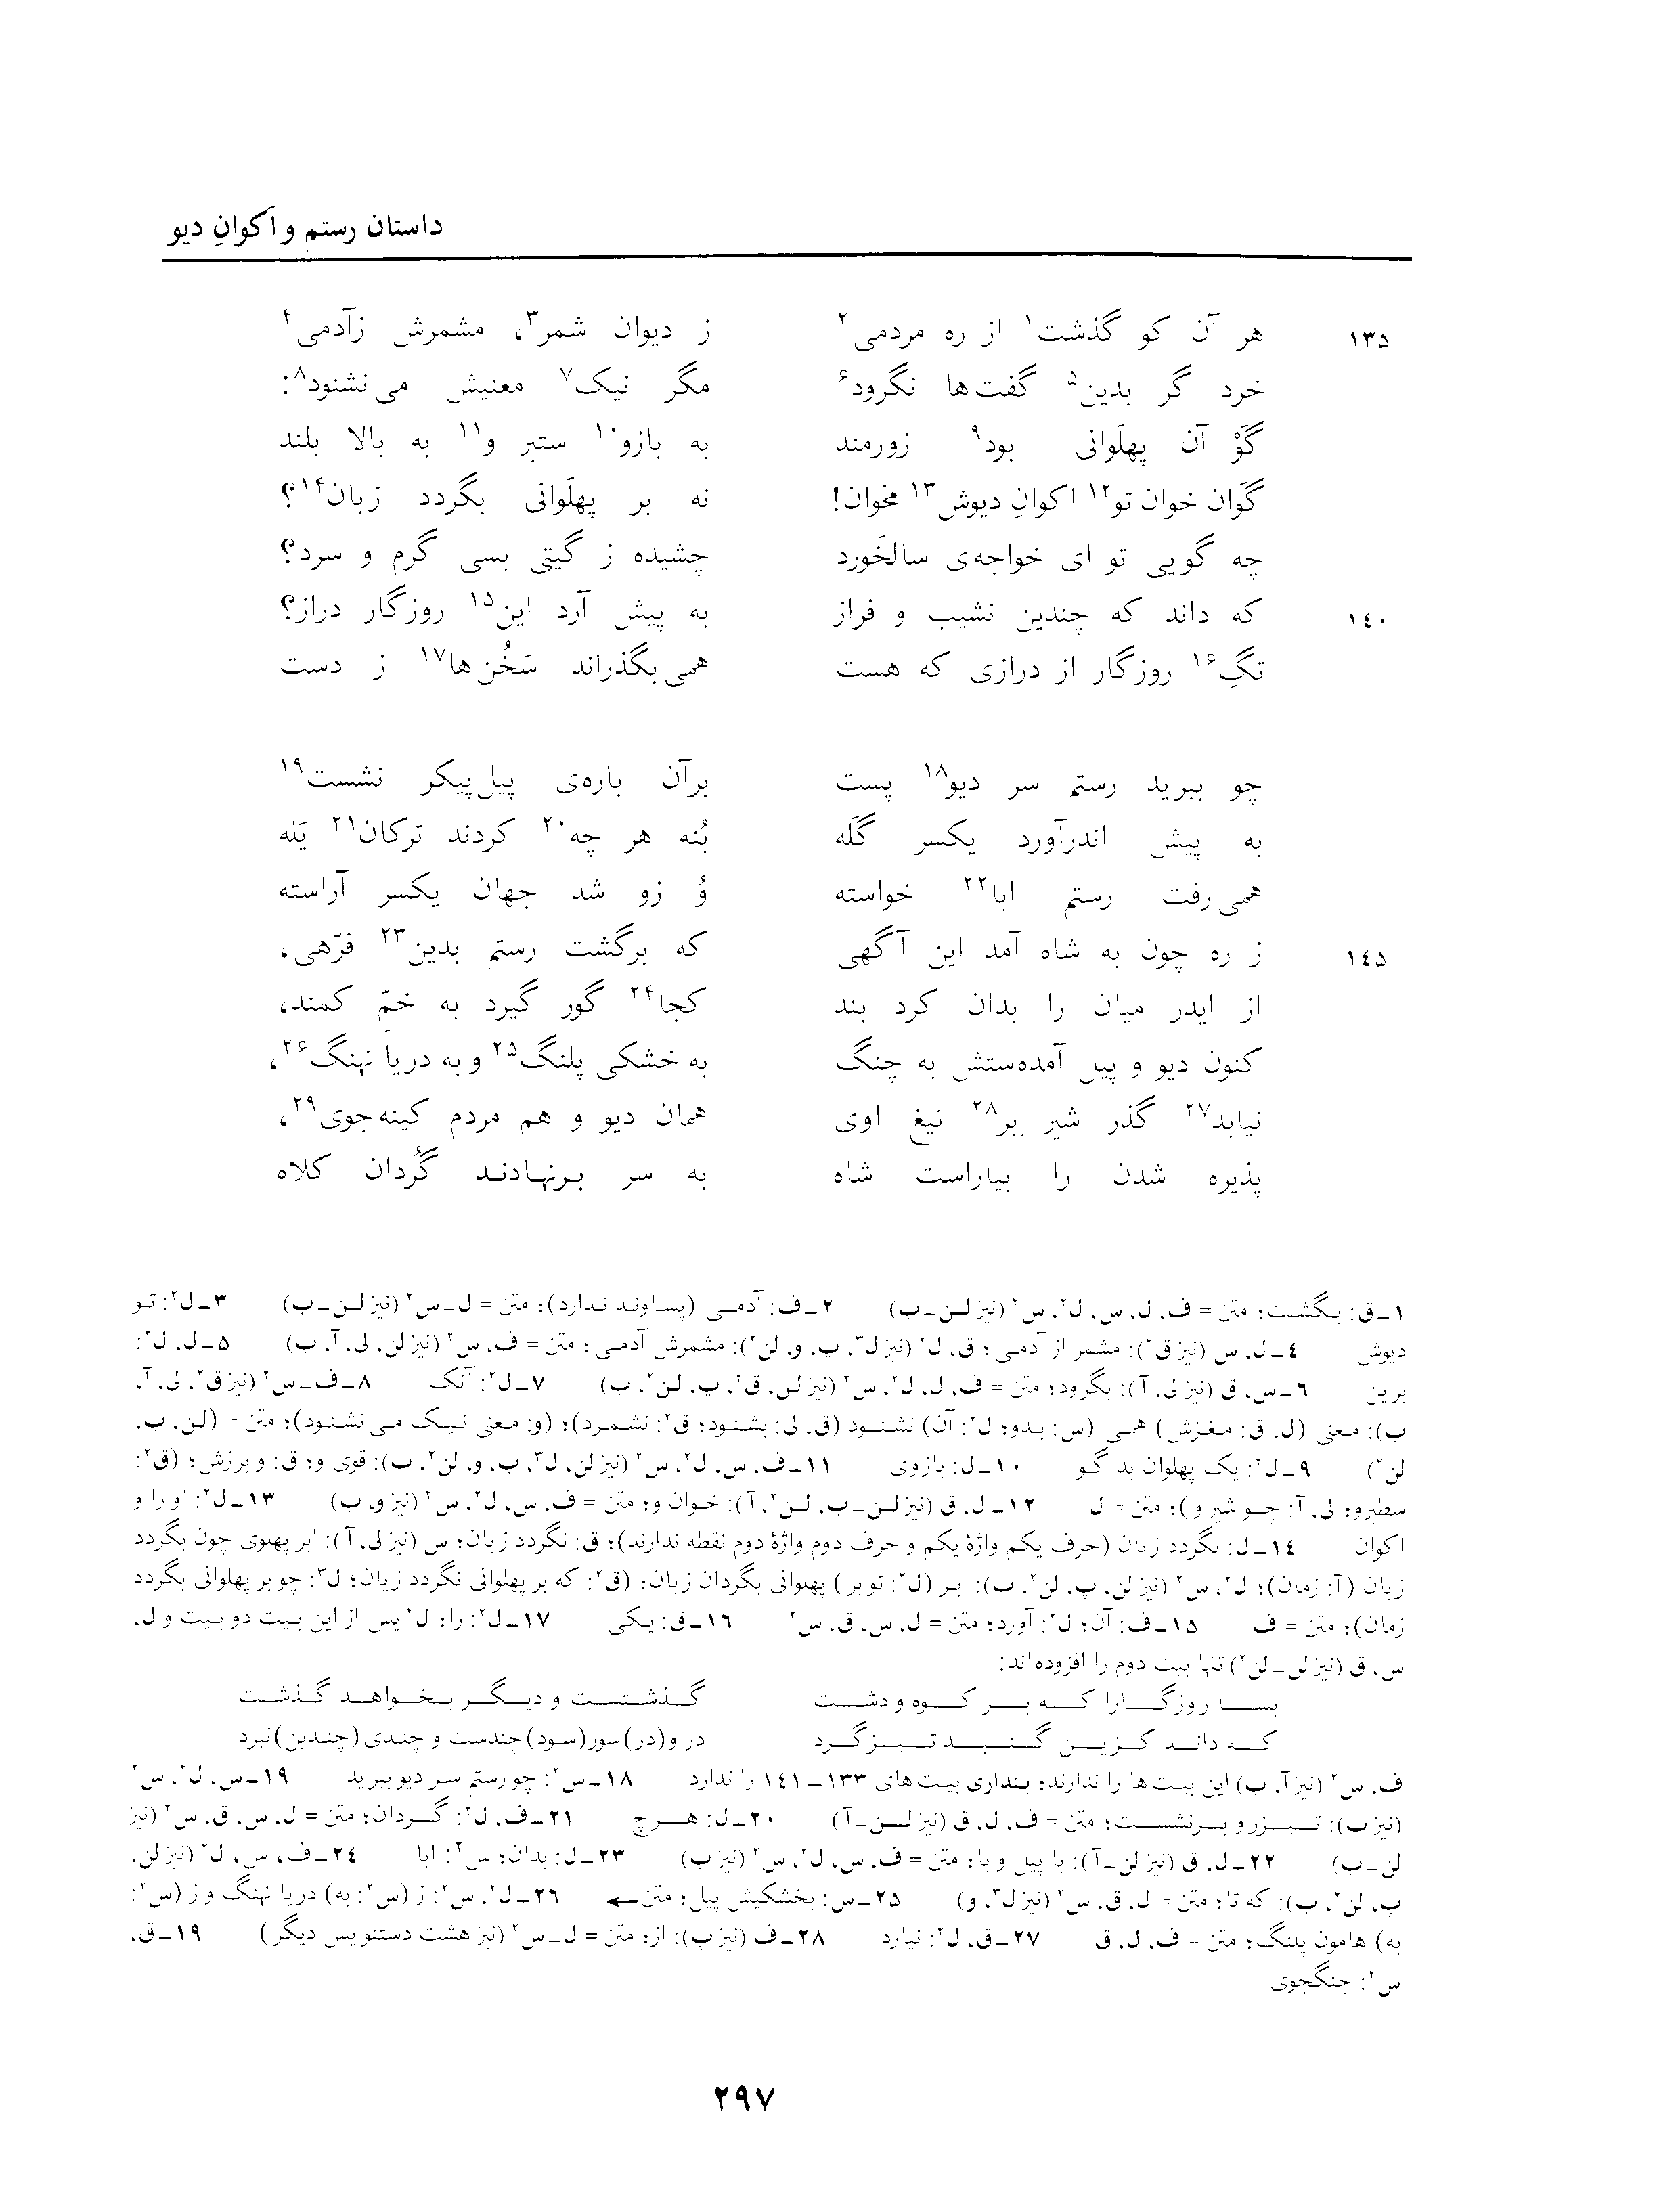 داستان رستم و اکوانِ دیو
۱۳۵ هر آن کو گذشت۱ از ره مردمی۲ ز دیوان شمر۳، مشمرش زآدمی۴
خرد گر بدین۵ گفت‌ها نگرود۶ مگر نیک۷ معنیش می‌نشنود۸:
گَوْ آن پهلَوانی بود۹ زورمند به بازو۱۰ ستبر و۱۱ به بالا بلند
گَوان خوان تو۱۲ اکوانِ دیوش۱۳ مخوان! نه بر پهلَوانی بگردد زبان۱۴؟
چه گویی تو ای خواجه‌ی سالخَورد چشیده ز گیتی بسی گرم و سرد؟
۱۴۰ که داند که چندین نشیب و فراز به پیش آرد این۱۵ روزگار دراز؟
تگِ۱۶ روزگار از درازی که هست همی‌بگذراند سَخُن‌ها۱۷ ز دست
چو ببرید رستم سر دیو۱۸ پست برآن باره‌ی پیل‌پیکر نشست۱۹
به پیش اندرآورد یکسر گَله بُنه هر چه۲۰ کردند ترکان۲۱ یَله
همی‌رفت رستم ابا۲۲ خواسته وُ زو شد جهان یکسر آراسته
۱۴۵ ز ره چون به شاه آمد این آگهی که برگشت رستم بدین۲۳ فرّهی،
از ایدر میان را بدان کرد بند کجا۲۴ گور گیرد به خمّ کمند،
کنون دیو و پیل آمده‌ستش به چنگ به خشکی پلنگ۲۵ و به دریا نهنگ۲۶،
نیابد۲۷ گذر شیر بر۲۸ تیغ اوی همان دیو و هم مردم کینه‌جوی۲۹،
پذیره شدن را بیاراست شاه به سر برنهادند گُردان کلاه
۱ـ ق: بگشت؛ متن = ف، ل، س، ل۲، س۲ (نیز لن ـ ب) ۲ـ ف: آدمی (پساوند ندارد)؛ متن = ل ـ س۲ (نیز لن ـ ب) ۳ـ ل۲: تو
دیوش ۴ـ ل، س (نیز ق۲): مشمر از آدمی؛ ق، ل۲ (نیز ل۳، پ، و، لن۲): مشمرش آدمی؛ متن = ف، س۲ (نیز لن، لی، آ، ب) ۵ـ ل، ل۲:
برین ۶ـ س، ق (نیز لی، آ): بگرود؛ متن = ف، ل، ل۲، س۲ (نیز لن، ق۲، پ، لن۲، ب) ۷ـ ل۲: آنک ۸ـ ف ـ س۲ (نیز ق۲، لی، آ،
ب): معنی (ل، ق: مغزش) همی (س: بدو؛ ل۲: آن) نشنود (ق، لی: بشنود؛ ق۲: نشمرد)؛ (و: معنی نیک می نشنود)؛ متن = (لن، پ،
لن۲) ۹ـ ل۲: یک پهلوان بد گو ۱۰ـ ل: بازوی ۱۱ـ ف، س، ل۲، س۲ (نیز لن، ل۳، پ، و، لن۲، ب): قوی و؛ ق: و برزش؛ (ق۲:
سطبرو؛ لی، آ: چو شیر و)؛ متن = ل ۱۲ـ ل، ق (نیز لن ـ پ، لن۲، آ): خوان و؛ متن = ف، س، ل۲، س۲ (نیز و، ب) ۱۳ـ ل۲: او را و
اکوان ۱۴ـ ل: بگردد زبان (حرف یکم واژهٔ یکم و حرف دوم واژهٔ دوم نقطه ندارند)؛ ق: نگردد زبان؛ س (نیز لی، آ): ابر پهلوی چون بگردد
زبان (آ: زمان)؛ ل۲، س۲ (نیز لن، پ، لن۲، ب): ابر (ل۲: تو بر) پهلوانی بگردان زبان؛ (ق۲: که بر پهلوانی نگردد زیان؛ ل۳: چو بر پهلوانی بگردد
زمان)؛ متن = ف ۱۵ـ ف: آن؛ ل۲: آورد؛ متن = ل، س، ق، س۲ ۱۶ـ ق: یکی ۱۷ـ ل۲: را؛ ل۲ پس از این بیت دو بیت و ل،
س، ق (نیز لن ـ لن۲) تنها بیت دوم را افزوده‌اند:
بسا روزگارا که بر کوه و دشت گذشتست و دیگر بخواهد گذشت
که داند کزین گنبد تیزگرد در و(در) سور(سود) چندست و چندی (چندین) نبرد
ف، س۲ (نیز آ، ب) این بیت‌ها را ندارند؛ بنداری بیت‌های ۱۳۳ ـ ۱۴۱ را ندارد ۱۸ـ س۲: چو رستم سر دیو ببرید ۱۹ـ س، ل۲، س۲
(نیز ب): تیزرو برنشست؛ متن = ف، ل، ق (نیز لن ـ آ) ۲۰ـ ل: هرچ ۲۱ـ ف، ل۲: گردان؛ متن = ل، س، ق، س۲ (نیز
لن ـ ب) ۲۲ـ ل، ق (نیز لن ـ آ): با پیل و با؛ متن = ف، س، ل۲، س۲ (نیز ب) ۲۳ـ ل: بدان؛ س۲: ابا ۲۴ـ ف، س، ل۲ (نیز لن،
پ، لن۲، ب): که تا؛ متن = ل، ق، س۲ (نیز ل۳، و) ۲۵ـ س: بخشکیش پیل؛ متن← ۲۶ـ ل۲، س۲: ز (س۲: به) دریا نهنگ و ز (س۲:
به) هامون پلنگ؛ متن = ف، ل، ق ۲۷ـ ق، ل۲: نیارد ۲۸ـ ف (نیز پ): از؛ متن = ل ـ س۲ (نیز هشت دستنویس دیگر) ۱۹ـ ق،
س۲: جنگجوی
۲۹۷